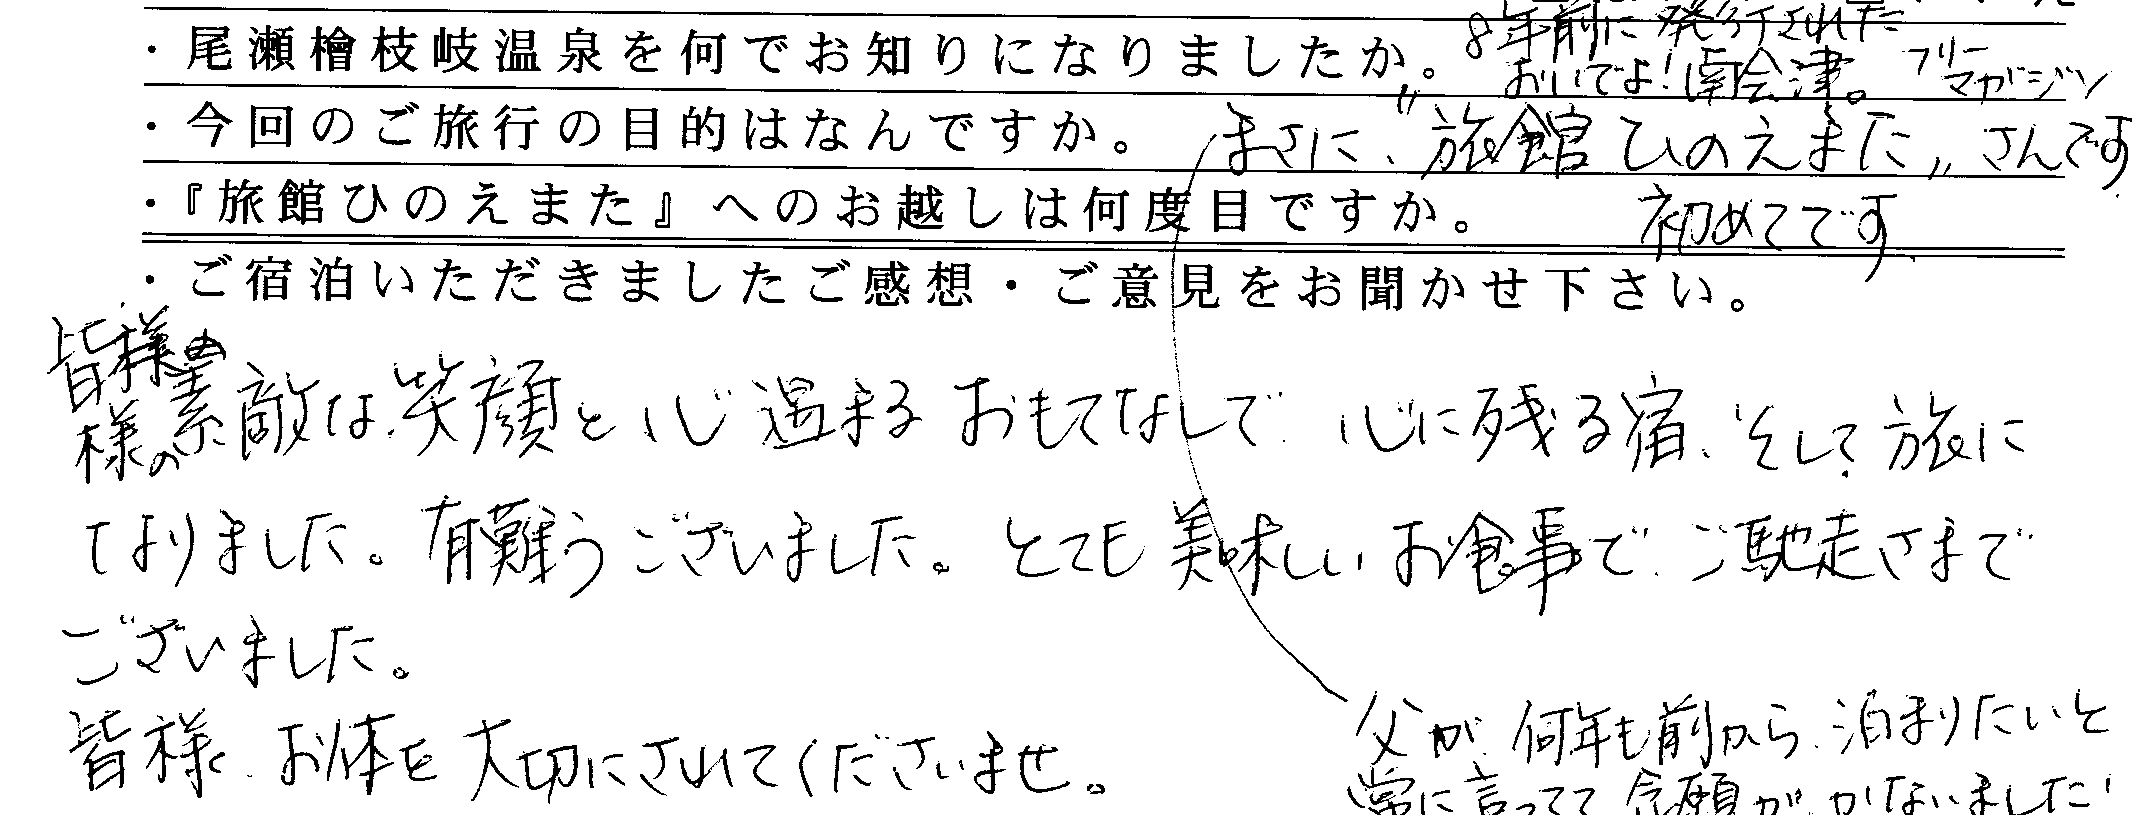 ・尾瀬檜枝岐温泉を何でお知りになりましたか。
8年前に発行された
おいでよ！南会津。 フリーマガジン
・今回のご旅行の目的はなんですか。 まさに、"旅館ひのえまた"さんです
・『旅館ひのえまた』へのお越しは何度目ですか。 初めてです
・ご宿泊いただきましたご感想・ご意見をお聞かせ下さい。
皆様の素敵な笑顔と心温まるおもてなしで、心に残る宿、そして旅に
なりました。有難うございました。とても美味しいお食事で、ご馳走さまで
ございました。
皆様、お体を大切にされてくださいませ。
父が、何年も前から、泊まりたいと
常に言ってて念願が、かないました!